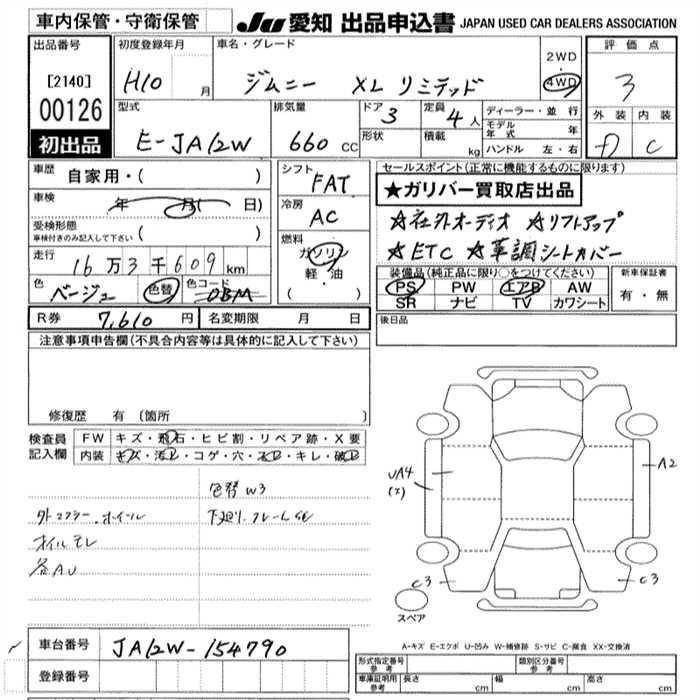 車内保管・守衛保管
JU 愛知 出品申込書 JAPAN USED CAR DEALERS ASSOCIATION
出品番号
[2140]
00126
初出品
初度登録年月
H10 月
車名・グレード
ジムニー XL リミテッド
2WD
4WD
評価点
3
外装 内装
C
型式
E-JA12W
排気量
660 cc
ドア
3
形状
定員
4 人
積載
kg
ディーラー・並行
モデル年式 年
ハンドル 左・右
車歴
自家用・( )
車検
年 月( 日)
受検形態
車検付きのみ記入して下さい ( )
走行
16 万 3 千 609 km
色
ベージュ
色替
色コード
シフト
FAT
冷房
AC
燃料
ガソリン
軽・油
( )
セールスポイント(正常に機能するものに限ります)
★ガリバー買取店出品
☆社外オーディオ ☆リフトアップ
☆ETC ☆革調シートカバー
装備品(純正品に限り○をつけてください)
PS PW エアB AW
SR ナビ TV カワシート
新車保証書
有・無
R券 7,610 円
名変期限 月 日
後日品
注意事項申告欄(不具合内容等は具体的に記入して下さい)
修復歴 有 (箇所 )
検査員記入欄
FW キズ・飛石・ヒビ割・リペア跡・X要
内装 キズ・汚レ・コゲ・穴・スレ・キレ・破レ
色替 W3
外マフラー、ホイール
下廻り、フレームSC
オイルモレ
各AU
A2
UA4
C3
C3
スペア
A-キズ E-エクボ U-凹み W-補修跡 S-サビ C-腐食 XX-交換済
車台番号 JA12W-154790
登録番号
形式指定番号 参考
類別区分番号 参考
車庫証明用 参考
長さ cm
幅 cm
高さ cm